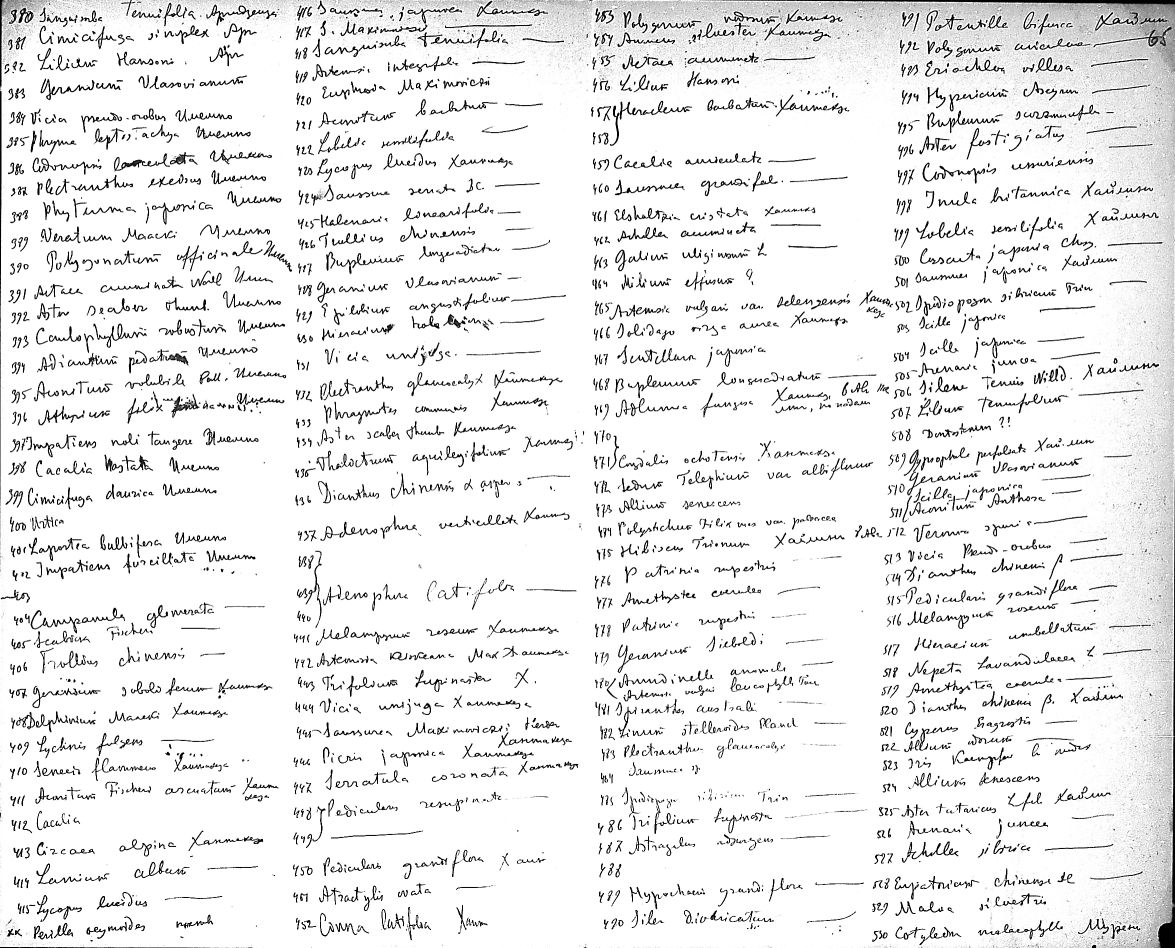 380 Sanguisorba tenuifolia
381 Cimicifuga simplex
382 Lilium Hansoni
383 Geranium Vlasovianum
384 Vicia pseudo-orobus Имеипо
385 Phryma leptostachya Имеипо
386 Codonopsis lanceolata Имеипо
387 Plectranthus excisus Имеипо
388 Phyteuma japonica Имеипо
389 Veratrum Maacki Имеипо
390 Polygonatum officinale
391 Actaea acuminata Wall
392 Aster scaber Thunb. Имеипо
393 Caulophyllum robustum Имеипо
394 Adiantum pedatum Имеипо
395 Aconitum volubile Pall. Имеипо
396 Athyrium filix Имеипо
397 Impatiens noli tangere Имеипо
398 Cacalia hastata Имеипо
399 Cimicifuga daurica Имеипо
400 Urtica
401 Laportea bulbifera Имеипо
402 Impatiens furcillata Имеипо
403
404 Campanula glomerata
405 Scabiosa Fischeri
406 Trollius chinensis
407 Geranium soboliferum Ханмакеза
408 Delphinium Maacki Ханмакеза
409 Lychnis fulgens
410 Senecio flammeus Ханмакеза
411 Aconitum Fischeri arcuatum
412 Cacalia
413 Circaea alpina Ханмакеза
414 Lamium album
415 Lycopus lucidus
Perilla ocymoides
416 Saussurea japonica Ханмакеза
417 S. Maximowiczi
418 Sanguisorba tenuifolia
419 Artemisia integrifolia
420 Euphrasia Maximowiczi
421 Aconitum barbatum
422 Lobelia sessilifolia
423 Lycopus lucidus Ханмакеза
424 Saussurea serrata DC.
425 Habenaria linearifolia
426 Trollius chinensis
427 Bupleurum longeradiatum
428 Geranium Vlasovianum
429 Epilobium angustifolium
430 Hieracium
431 Vicia unijuga
432 Plectranthus glaucocalyx Ханмакеза
433 Phragmites communis Ханмакеза
434 Aster scaber Thunb Ханмакеза
435 Thalictrum aquilegifolium
436 Dianthus chinensis α asper
437 Adenophora verticillata
438
439 Adenophora latifolia
440
441 Melampyrum roseum Ханмакеза
442 Artemisia Keiskeana Max Ханмакеза
443 Trifolium Lupinaster X.
444 Vicia unijuga Ханмакеза
445 Saussurea Maximowiczi
446 Picris japonica Ханмакеза
447 Serratula coronata Ханмакеза
448 Pedicularis resupinata
449
450 Pedicularis grandiflora
451 Atractylis ovata
452 Cinna latifolia
453 Polygonum Ханмакеза
454 Silvester Ханмакеза
455 Actaea acuminata
456 Lilium Hansoni
457 Heracleum barbatum Ханмакеза
458
459 Cacalia auriculata
460 Saussurea grandifol.
461 Elsholtzia cristata
462 Achillea acuminata
463 Galium uliginosum L
464 Milium effusum ?
465 Artemisia vulgaris var. selengensis
466 Solidago virga aurea Ханмакеза
467 Scutellaria japonica
468 Bupleurum longeradiatum
469 Adlumia fungosa
470
471 Corydalis ochotensis Ханмакеза
472 Sedum Telephium var albiflorum
473 Allium senescens
474 Polystichum Filix mas var.
475 Hibiscus Trionum Хайлин
476 Patrinia rupestris
477 Amethystea coerulea
478 Patrinia rupestris
479 Geranium Sieboldi
480 Arundinella anomala
Artemisia vulgaris leucophylla
481 Spiranthes australis
482 Linum stelleroides Planch
483 Plectranthus glaucocalyx
484 Saussurea sp.
485 Spodiopogon sibiricum Trin
486 Trifolium Lupinaster
487 Astragalus adsurgens
488
489 Hypochaeris grandiflora
490 Siler divaricatum
491 Potentilla bifurca Хайлин
65
492 Polygonum aviculare
493 Eriochloa villosa
494 Hypericum Ascyron
495 Bupleurum
496 Aster fastigiatus
497 Codonopsis ussuriensis
498 Inula britannica Хайлин
499 Lobelia sessilifolia Хайлин
500 Cuscuta japonica Choisy.
501 Saussurea japonica Хайлин
502 Spodiopogon sibiricum Trin
503 Scilla japonica
504 Scilla japonica
505 Arenaria juncea
506 Silene tenuis Willd. Хайлин
507 Lilium tenuifolium
508 Dontostemon ?!
509 Gypsophila perfoliata Хайлин
510 Geranium Vlasovianum
Scilla japonica
511 Aconitum Anthora
512 Veronica spuria
513 Vicia Pseudo-orobus
514 Dianthus chinensis β
515 Pedicularis grandiflora
516 Melampyrum roseum
517 Hieracium umbellatum
518 Nepeta Lavandulacea L
519 Amethystea coerulea
520 Dianthus chinensis β. Хайлин
521 Cyperus Eragrostis
522 Allium odorum
523 Iris Kaempferi
524 Allium senescens
525 Aster tataricus L fil Хайлин
526 Arenaria juncea
527 Achillea sibirica
528 Eupatorium chinense
529 Malva silvestris
530 Cotyledon malacophylla